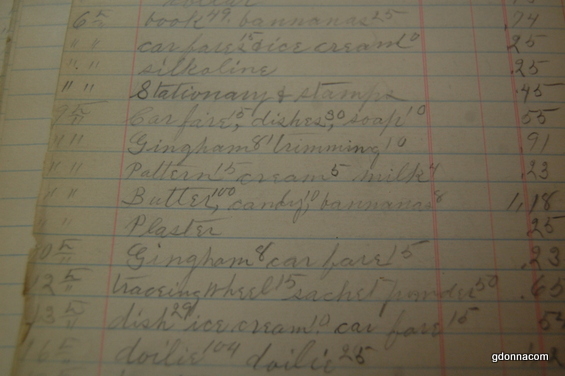 6 5/" book 49, bannanas 25 .74
" " carfares 15 & ice cream 10 25
" " silkoline .25
" " Stationary & stamps .45
9 5/" Carfare 15, dishes 30, soap 10 55
" " Gingham 81 trimming 10 .91
" " Pattern 15 cream 5 milk 4 .23
" " Butter, 100 candy, 10 bannanas 8 1.18
" " Plaster 25
10 5/" Gingham 8 car fare 15 .23
12 5/" traceing wheel 15 sachet powder 50 .65
13 5/" dish 29 ice cream 10 car fare 15
16 5/" doilie 104 doilie 25
gdonnacom